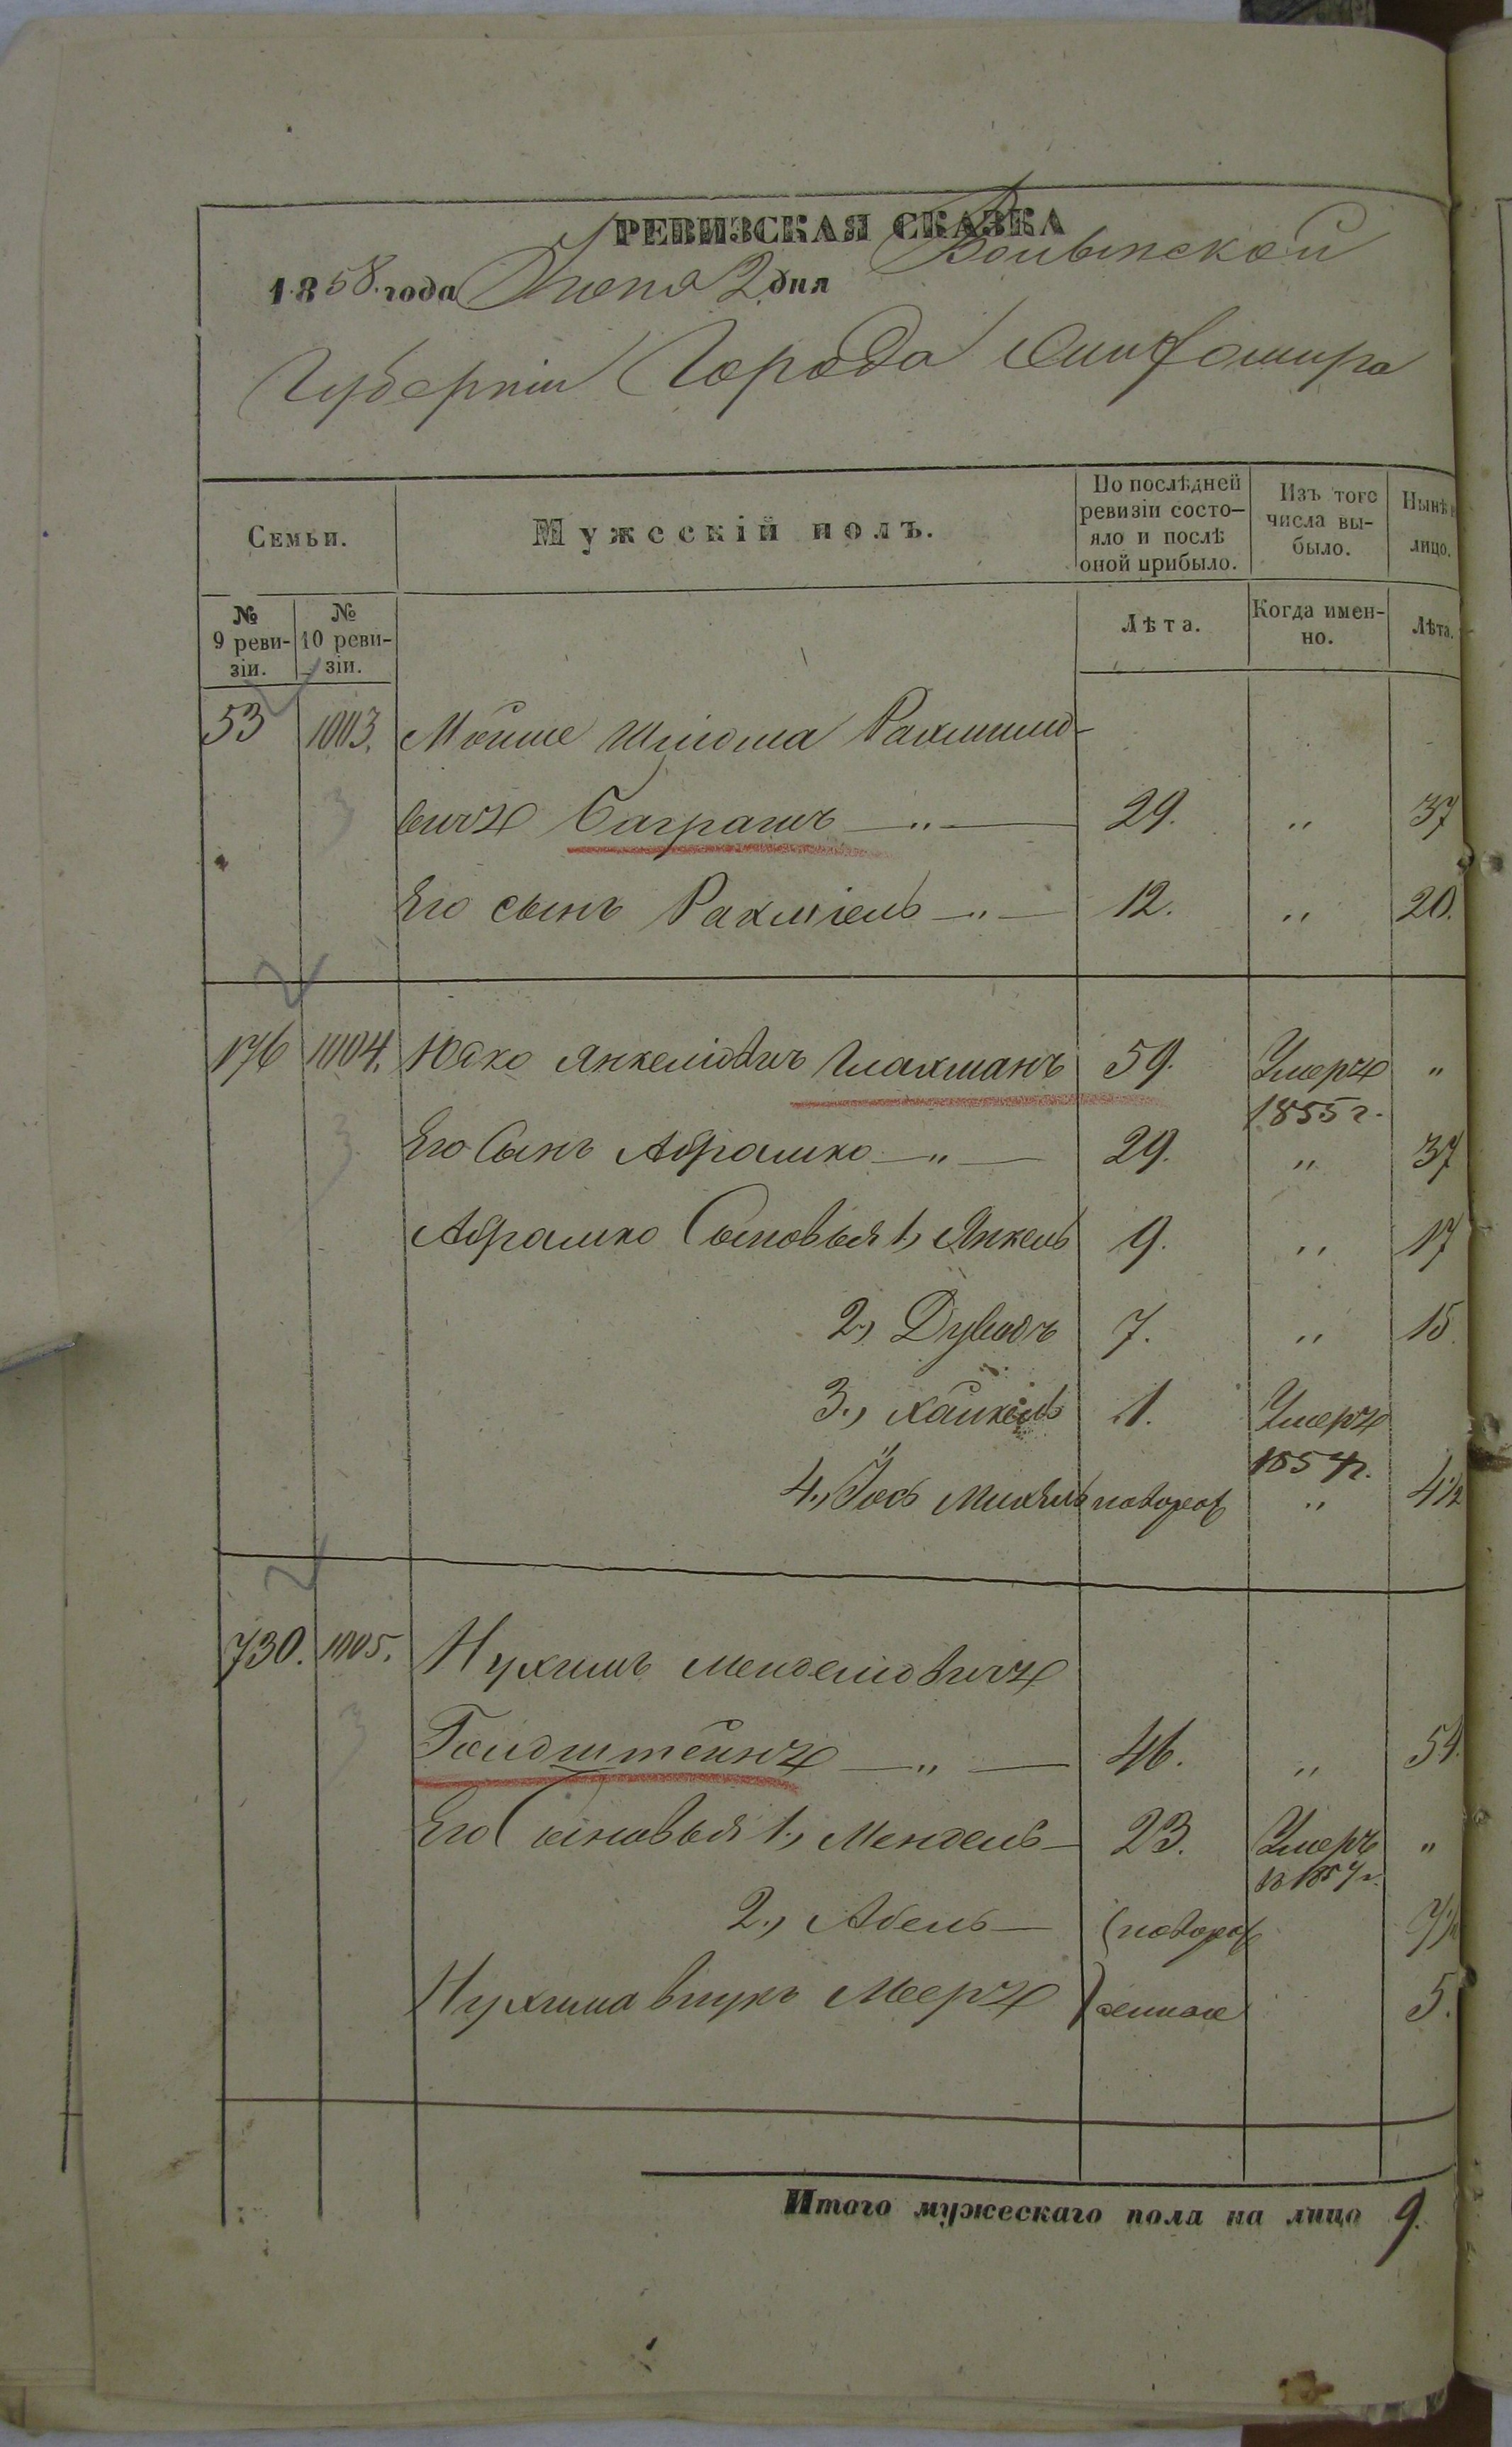 РЕВИЗСКАЯ СКАЗКА
1858. года Июня 2 дня Волынской
Губерніи Города Житомира
Семьи.
Мужескій полъ.
По послѣдней ревизіи состо-
яло и послѣ оной прибыло.
Изъ того числа вы-
было.
Нынѣ
лицо.
№ 9 реви-
зіи.
№ 10 реви-
зіи.
Лѣта.
Когда имен-
но.
Лѣта.
53 1003. Мойше Шліома Рахмиліо-
вичъ Баграшъ —"— 29. " 37
Его сынъ Рахміель —"— 12. " 20.
176 1004. Юско Янкеліовичъ Глахманъ 59. Умеръ "
1855 г.
Его Сынъ Абрашко —"— 29. " 37
Абрашко Сыновья 1, Янкель 9. " 17
2., Дувидъ 7. " 15
3., Хаикель 1. Умеръ
1854 г.
4., Іось Михель новорож " 4½
730. 1005. Нухимъ Менделіовичъ
Голдштейнъ —"— 46. " 54.
Его Сыновья 1., Мендель — 23. Умеръ "
в 1857 г.
2., Абель — (новорож
Нухима внукъ Мееръ ) 5.
Итого мужескаго пола на лицо 9.